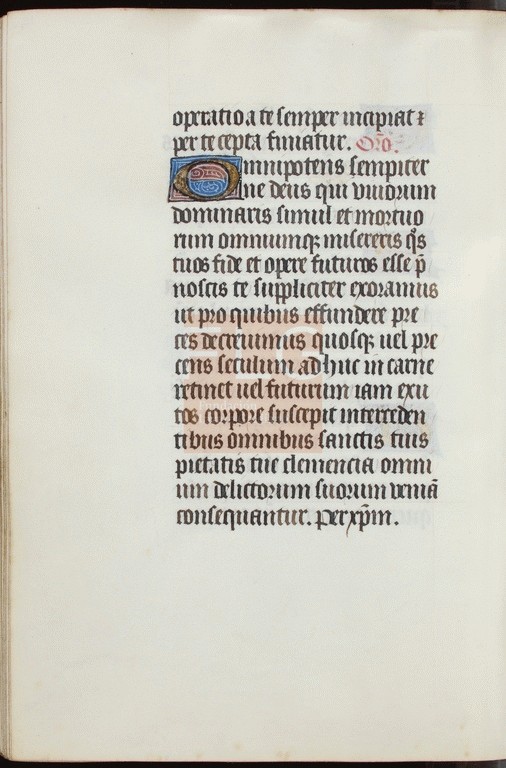 operatio a te semper incipiat ⁊
per te cepta finiatur. Orō.
Omnipotens sempiter
ne deus qui viuorum
dominaris simul et mortuo
rum omniumqꝫ misereris qͦs
tuos fide et opere futuros esse p̄
noscis te suppliciter exoramus
ut pro quibus effundere pre
ces decreuimus quosqꝫ uel pre
cens seculum adhuc in carne
retinet uel futurum iam exu
tos corpore suscepit interceden
tibus omnibus sanctis tuis
pietatis tue clemencia omni
um delictorum suorum veniā
consequantur. Per xp̄m.